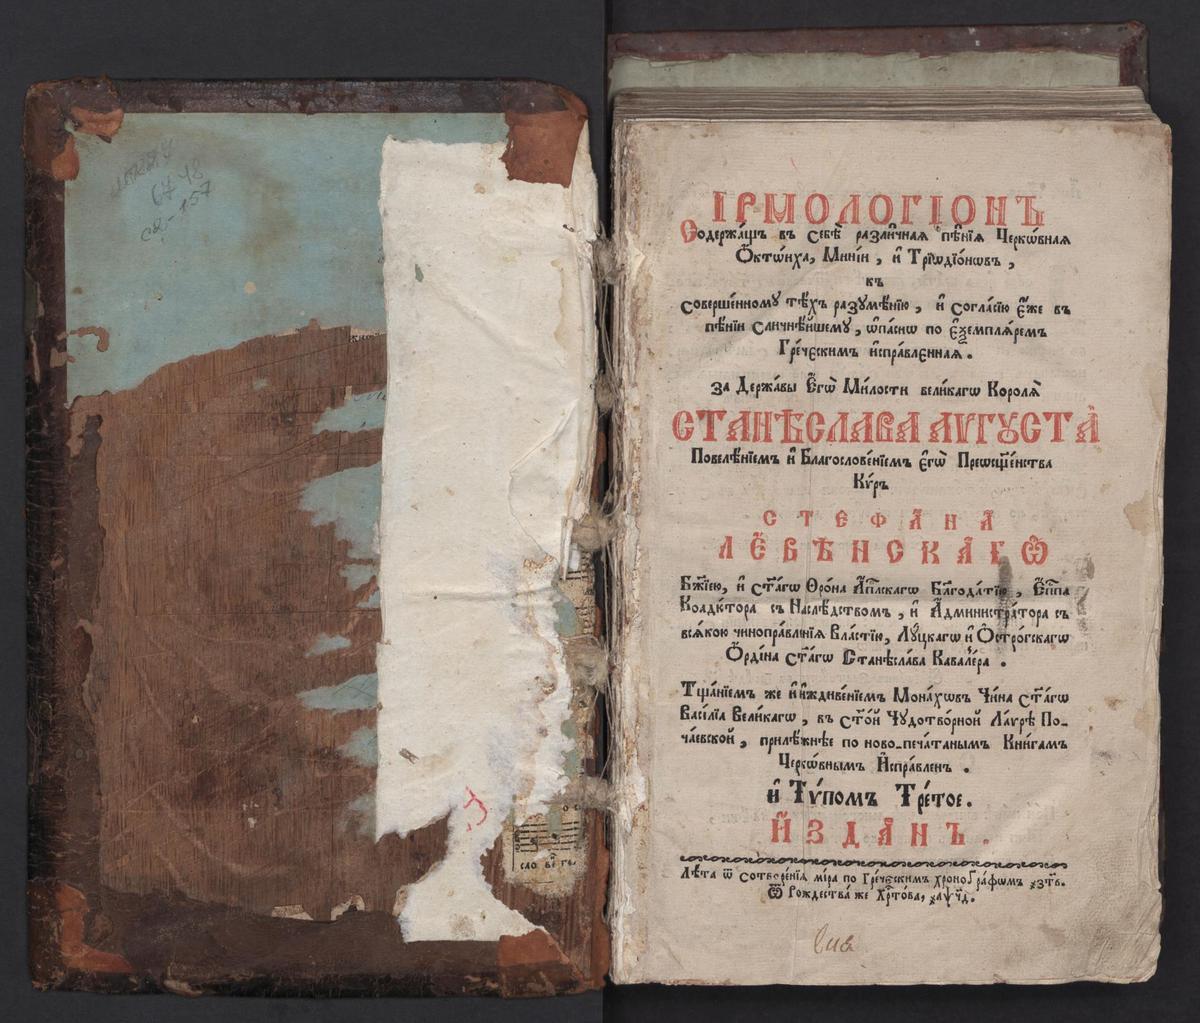 67 48
сло вѐ ге
ІРМОЛОГІОНЪ
Содержа́щъ въ Себѣ̀ разли́чная пѣ̑нїя Черкѡ́вная
Ѻ҆ктѡ́иха, Мині́и, и҆ Трїѡдїо́нѡвъ,
къ
совершенному тѣ́хъ разумѣ́нїю, и҆ согла́сїю є҆́же въ
пѣ́нїи Сличнѣ́йшему, ѡ҆па́снѡ по є҆ѯемпля́ремъ
Гре́ческимъ и҆спра́вленная.
за Держа́вы Є҆гѡ̀ Ми́лости вели́кагѡ Короля̀
СТАНѢСЛАВА АѴГꙊСТА̀
Повелѣ́нїемъ и҆ Благослове́нїемъ є҆гѡ̀ Преѡсщ҃е́нства
Кѵ́ръ
СТЕФА́НА
ЛЕ́ВѢНСКАГѠ
Бж҃їею, и҆ ст҃а́гѡ Ѳро́на А҆пⷭ҇лскагѡ Бл҃года́тїю, Є҆пⷭ҇па
Коадю́тора съ Наслѣ́дствомъ, и҆ А҆дминистра́тора съ
вся́кою чинопра́вленїя Вла́стїю, Лꙋ́цкагѡ и҆ Ѻ҆стро́гскагѡ
Ѻ҆́рдїна ст҃а́гѡ Станѣсла́ва Кавале́ра.
Тща́нїемъ же и҆ и҆ждиве́нїемъ Мона́хѡвъ Чи́на ст҃а́гѡ
Васі́лїа Вели́кагѡ, въ ст҃о́й Чꙋдотво́рной Ла́ѵрѣ По-
ча́евской, прилѣ́жнѣе по ново-печа́танымъ Кни́гамъ
Черкѡ́внымъ И҆спра́вленъ.
и҆ Тѵ́помъ Тре́тое.
И҆ЗДА́НЪ.
Лѣ́та ѿ сотворе́нїя мі́ра по Гре́ческимъ хроногра́фомъ ҂зт҃в.
Ѿ Рождества́ же Хрⷭ҇то́ва, ҂аѱч҃д.